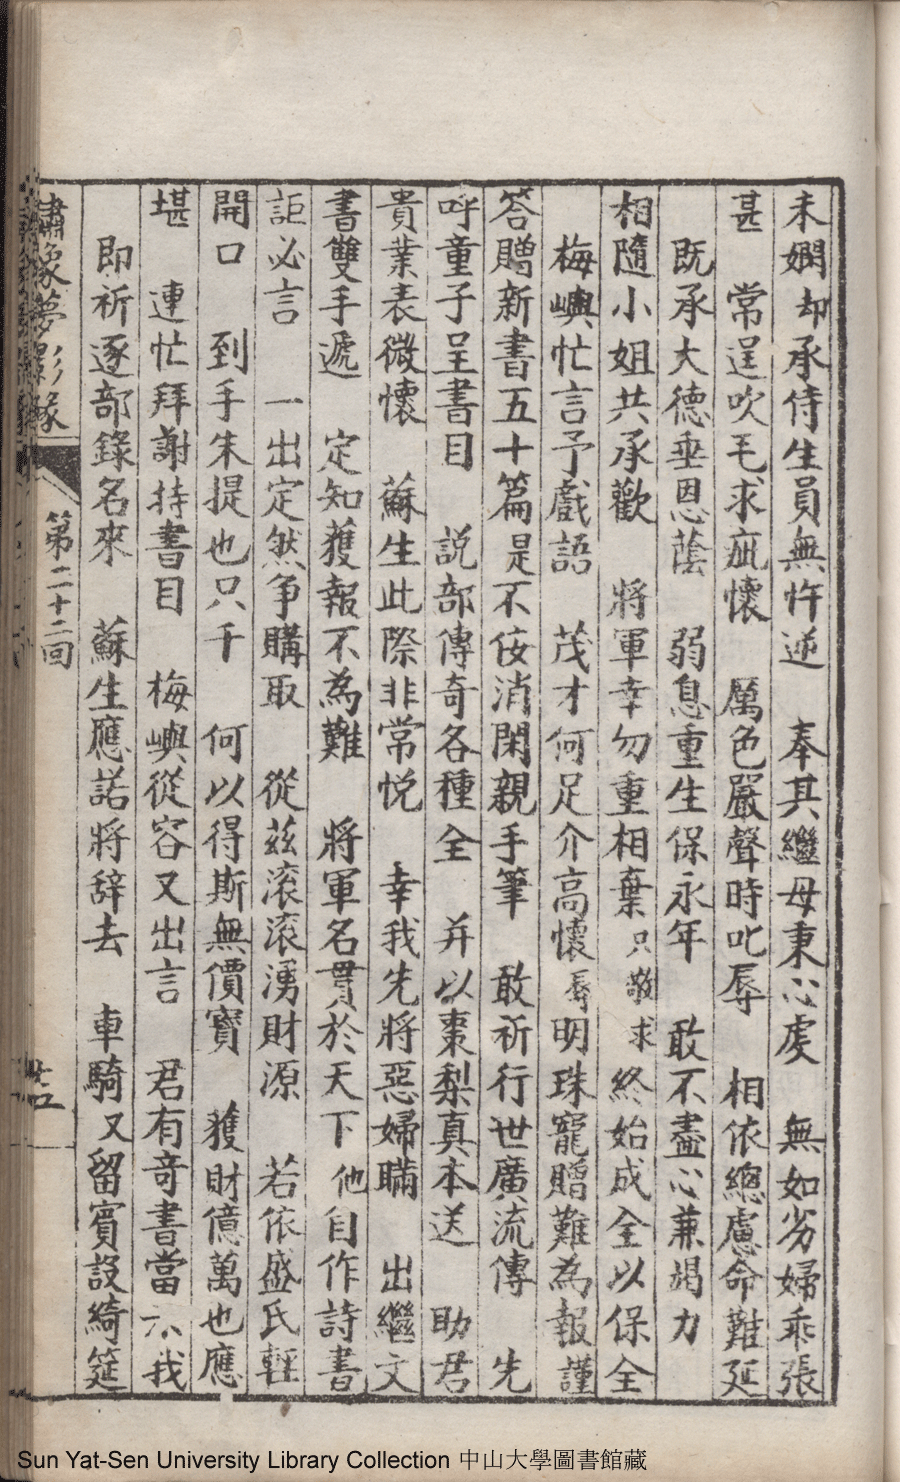 未嫻却承侍生員無忤逆　奉其繼母秉心虔　無如劣婦乖張
甚　常逞吹毛求疵懷　厲色嚴聲時叱辱　相依總慮命難延
既承大德垂恩蔭　弱息重生保永年　敢不盡心兼竭力
相隨小姐共承歡　將軍幸勿重相棄只敬求終始成全以保全
梅嶼忙言予戲語　茂才何足介高懷辱明珠寵贈難為報謹
答贈新書五十篇是不佞消閑親手筆　敢祈行世廣流傳　先
呼童子呈書目　説部傳奇各種全　并以棗梨真本送　助君
貴業表微懷　蘇生此際非常悦　幸我先將惡婦瞞　出繼文
書雙手遞　定知獲報不為難　將軍名貫於天下他自作詩書
詎必言　一出定然争購取　從茲滚滚湧財源　若依盛氏輕
開口　到手朱提也只千　何以得斯無價寶　獲財億萬也應
堪　連忙拜謝持書目　梅嶼從容又出言　君有奇書當示我
即祈逐部錄名來　蘇生應諾將辞去　車騎又留賓設綺筵
繡像夢影緣
第二十二回
Sun Yat-Sen University Library Collection 中山大學圖書館藏